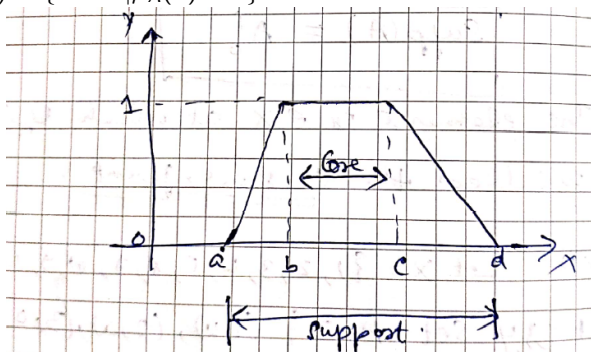 y
1
Core
0
a b c d X
support